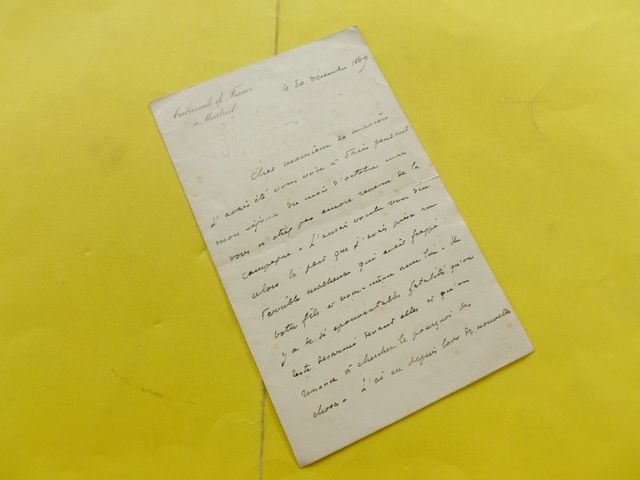 Ambassade de France
à Madrid
le 30 Décembre 1889
cher monsieur de
J'avais été vous voir à Paris pendant
mon séjour du mois d'octobre mais
vous n'étiez pas encore revenu de la
campagne. J'aurais voulu vous dire
alors la part que j'avais prise au
terrible malheur qui avait frappé
votre fils et vous-même avec lui. Il
y a de si épouvantables fatalités qu'on
reste désarmé devant elles et qu'on
renonce à chercher le pourquoi des
choses. J'ai eu depuis lors des nouvelles